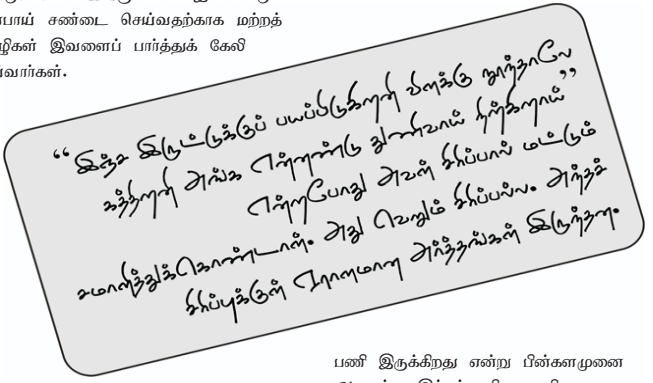 ண்பாய் சண்டை செய்வதற்காக மற்றத்
ழிகள் இவளைப் பார்த்துக் கேலி
வார்கள்.
“இந்த இருட்டுக்குப் பயப்பிடுகிறனி விளக்கு நூந்தாலே
கத்திறனி அங்க என்னண்டு துணிவாய் நிற்கிறாய்”
என்றபோது அவள் சிரிப்பால் மட்டும்
சமாளித்துக்கொண்டாள். அது வெறும் சிரிப்பல்ல. அந்தச்
சிரிப்புக்குள் ஏராளமான அர்த்தங்கள் இருந்தன.
பணி இருக்கிறது என்று பின்களமுனை